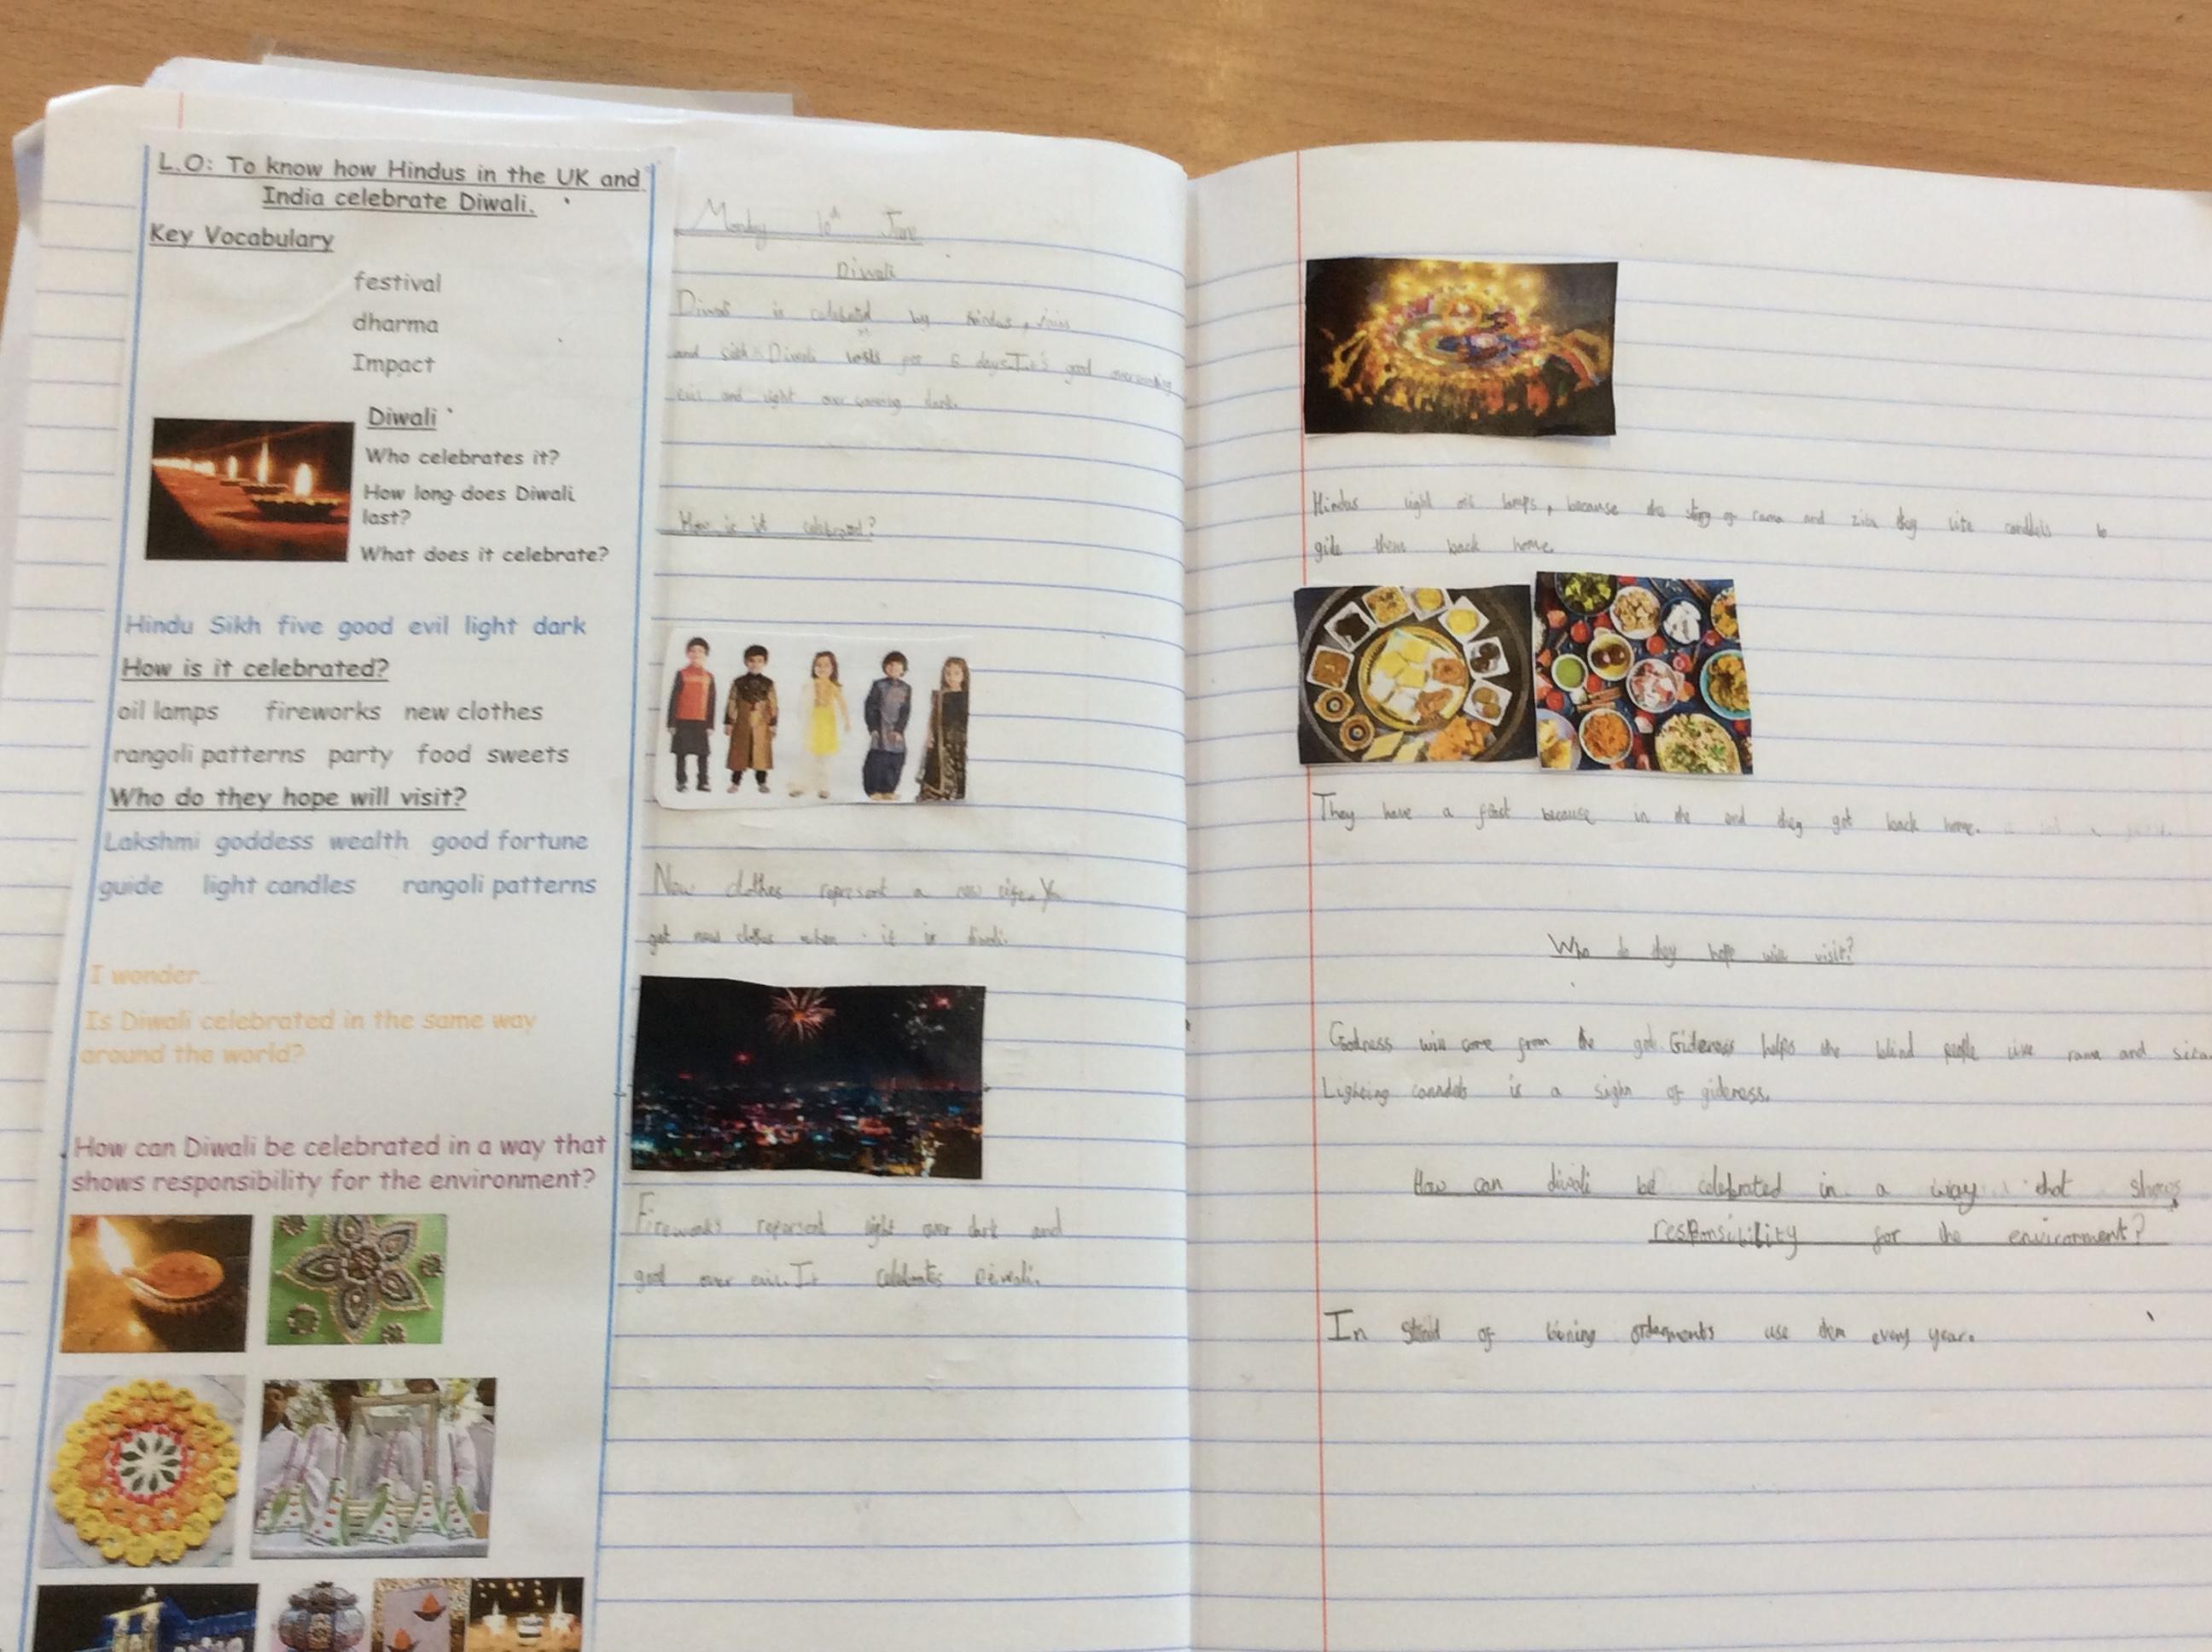 L.O: To know how Hindus in the UK and
India celebrate Diwali.
Key Vocabulary
festival
dharma
Impact
Diwali
Who celebrates it?
How long does Diwali
last?
What does it celebrate?
Hindu Sikh five good evil light dark
How is it celebrated?
oil lamps fireworks new clothes
rangoli patterns party food sweets
Who do they hope will visit?
Lakshmi goddess wealth good fortune
guide light candles rangoli patterns
I wonder...
Is Diwali celebrated in the same way
around the world?
How can Diwali be celebrated in a way that
shows responsibility for the environment?
Monday 10th June
Diwali
Diwali is celebrated by hindus, Jains
and sikh Diwali lasts for 5 days. It's good overcoming
evil and light over dark.
How is it celebrated?
New clothes represent a new life. You
get new clothes when it is diwali.
Fireworks represent light over dark and
good over evil. It celebrates Diwali.
Hindus light oil lamps, because the story of rama and they lite canddels to
gide them back home.
They have a because in the end they got back home.
Who do they hope will visit?
Godness will come from the god. Gideness helps the blind people like rama and sita.
Lighting canndels is a sighn of gideness.
How can diwali be celebrated in a way that shows
responsibility for the environment?
In of ordaments use them every year.